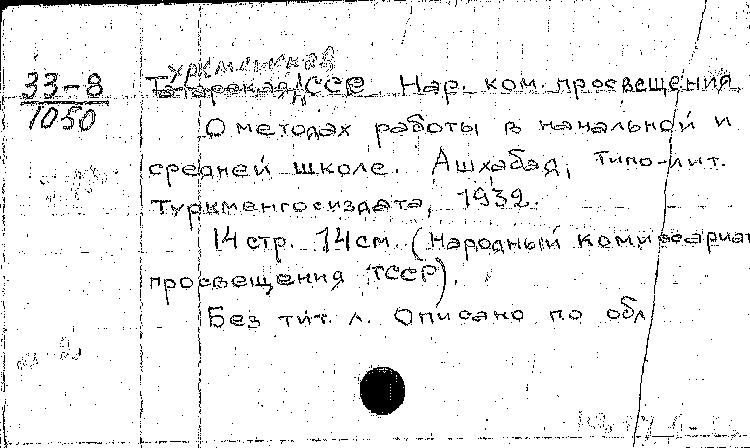 33-8
1050
Туркменская ССР Нар. ком. просвещения
О методах работы в начальной и
средней школе. Ашхабад, типо-лит.
Туркменгосиздата, 1932.
14 стр. 14 см. (Народный комиссариат
просвещения ТССР).
Без тит. л. Описано по обл